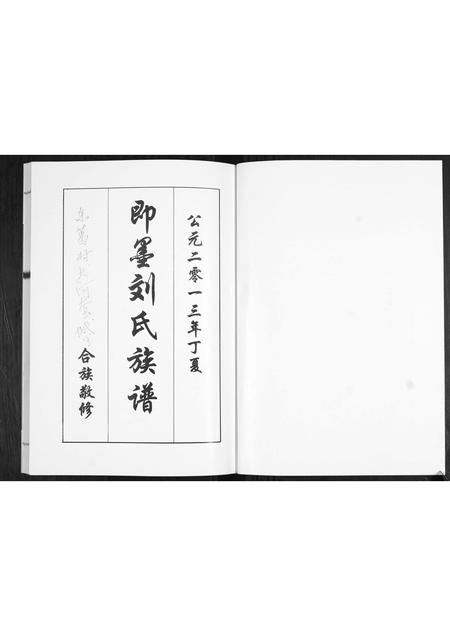 公元二零一三年丁夏
即墨刘氏族谱
合族敬修